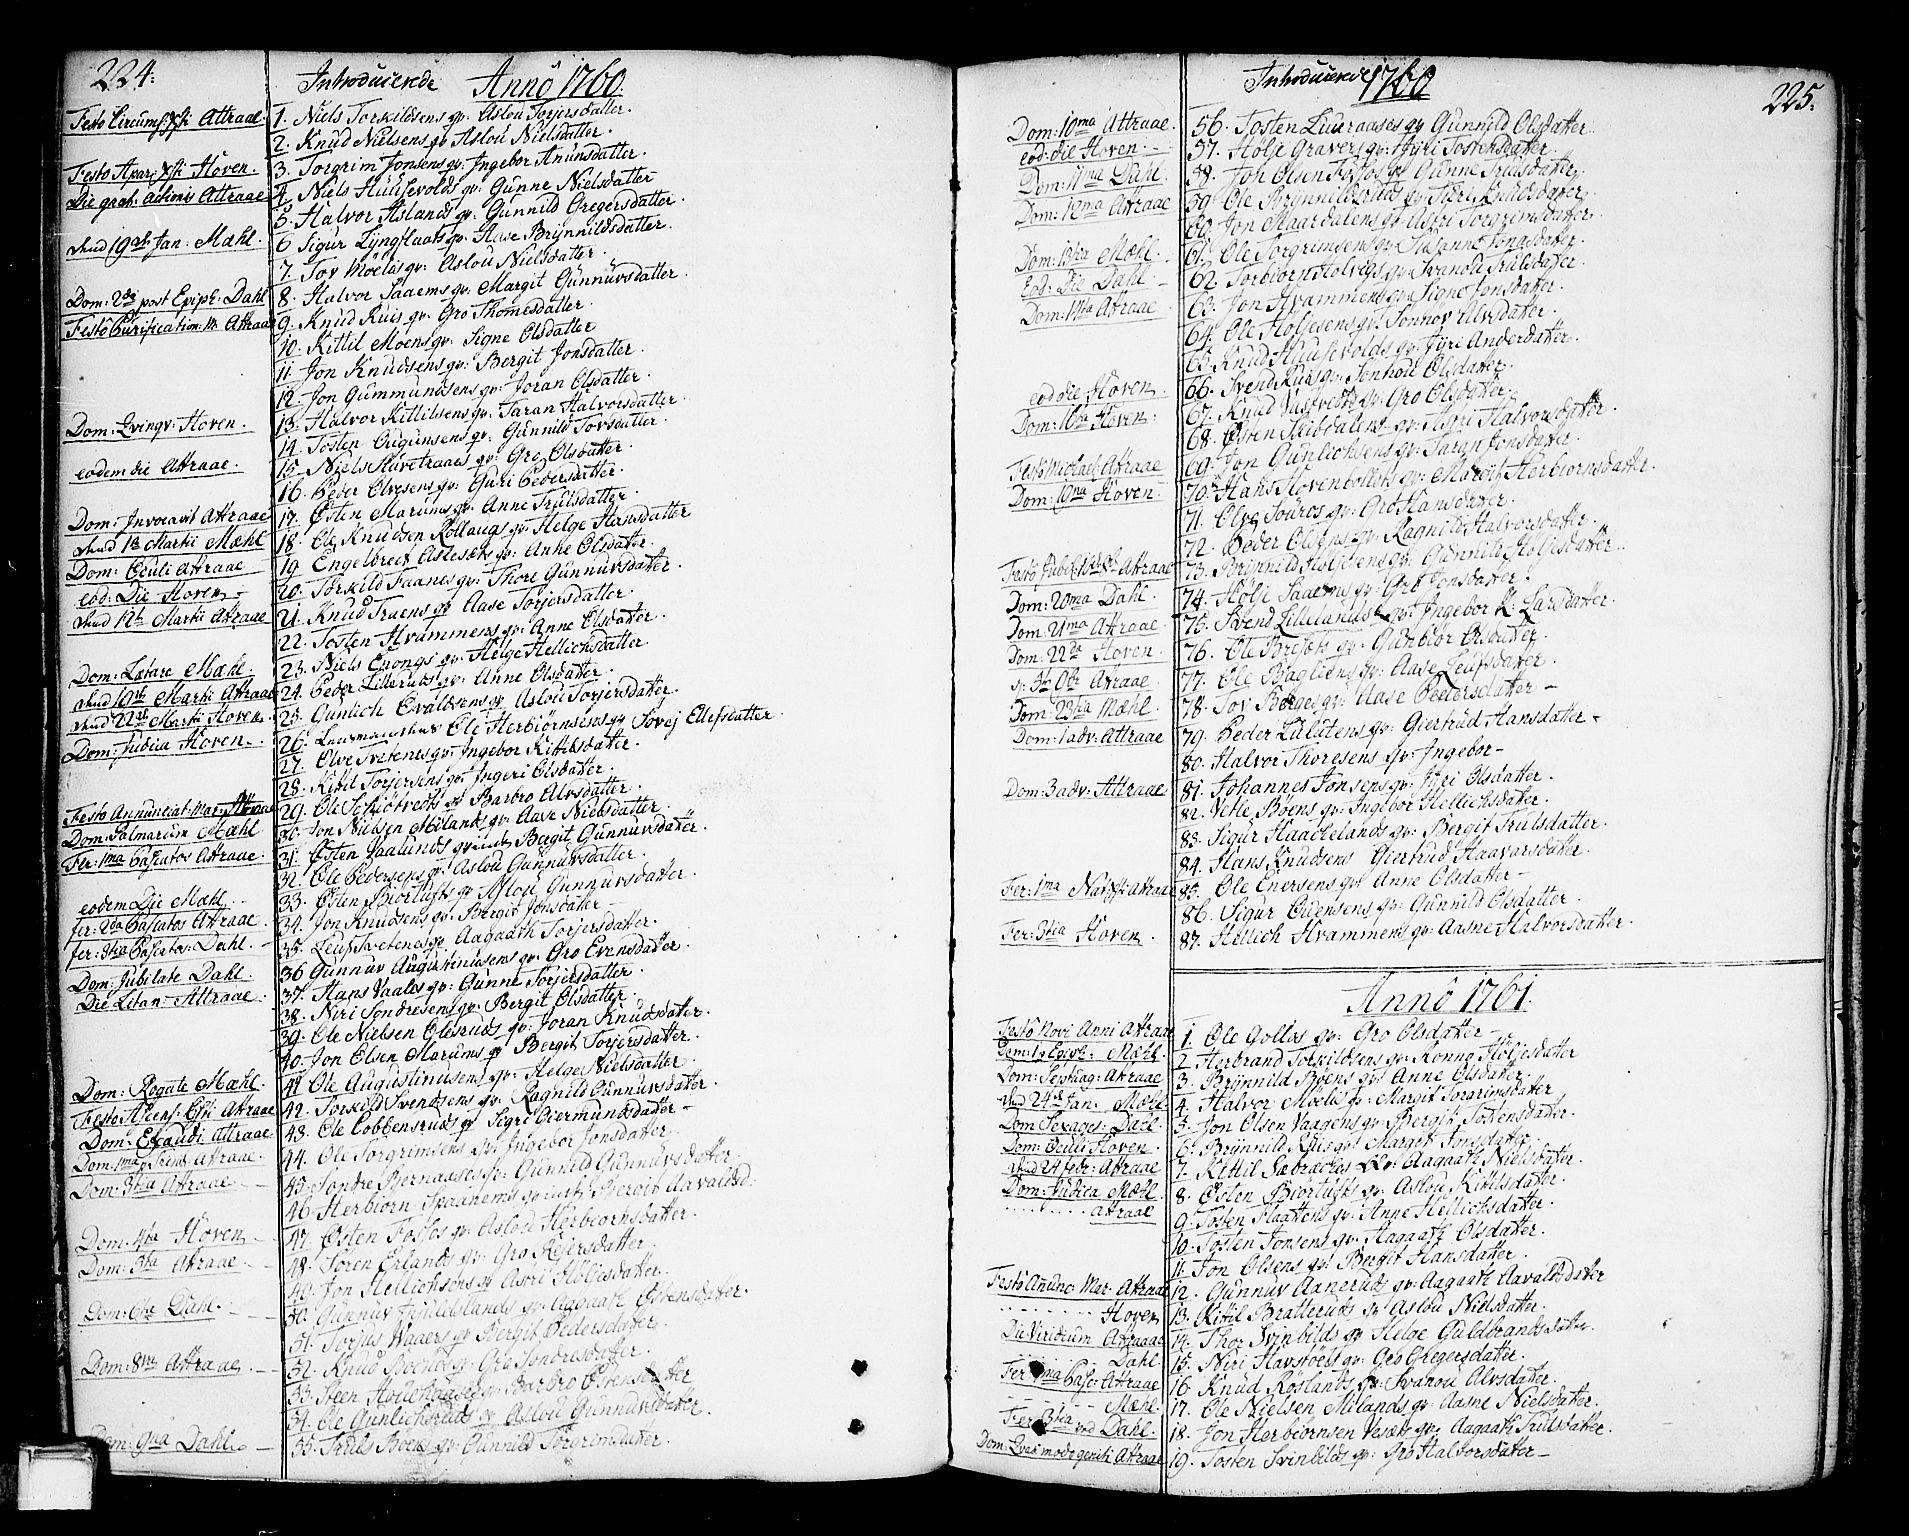 224.
Introduierede Anno 1760.
Festo Circumf: Xsti Attraae. 1. Niels Torkildsens qv: Aslou Torjersdatter.
2. Knud Nielsens qv: Aslou Nielsdatter.
Festo Apar: Xsti Hoven. 3. Torgrim Jonsens qv: Ingebor Amunsdatter.
Die grat: actionis Attraae 4. Niels Huusevolds qv: Gunne Nielsdatter
5. Halvor Aslands qv: Gunnild Gregersdatter.
19 Jan: Mæhl. 6. Sigur Lyngflaats qv: Aase Brynnildsdatter.
7. Tov Moelas qv: Aslou Nielsdatter.
Dom: 2da post Epiph: Dahl 8. Halvor Saaems qv: Margit Gunnuvsdatter
Festo Purification: M: Attraae 9. Knud Ruis qv: Gro Thomesdatter.
10. Kittil Moens qv: Signe Olsdatter.
11. Jon Knudsens qv: Bergit Jonsdatter.
12. Jon Gummundsens qv: Joran Olsdatter.
Dom: Qvinqv: Hoven. 13. Halvor Kittilsens qv: Taran Halvorsdatter.
14. Tosten Ougunsens qv: Gunnild Tovsdatter.
eodem die Attraae. 15. Niels qv: Gro Olsdatter
16. Peder Olvesens qv: Guri Pedersdatter.
Dom: Invocavit Attraae 17. Østen Marums qv: Anne Trulsdatter.
Martii Mæhl 18. Ole Knudsen Rollaugs qv: Helge Hansdatter
Dom: Oculi Attraae 19. Engelbrect Aslesøns qv: Anne Olsdatter.
eod: Die Hoven 20. Torkild Faanes qv: Thore Gunnuvsdatter.
12 Martii Attraae 21. Knud Truens qv: Aase Torjersdatter.
22. Tosten Hvammens qv: Anne Olsdatter.
Dom: Lætare Mæhl. 23. Niels Enongs qv: Helge Hellichsdatter.
Martii Attraae 24. Peder Lilleruds qv: Anne Olsdatter.
22 Martii Hoven 25. Gunlich Evaldsens qv: Aslou Torjersdatter.
Dom: Judica Hoven. 26. Ole Herbiørnsens qv: Sovej Ellefsdatter.
27. Olve Svetens qv: Ingebor Kittilsdatter.
28. Kittil Torjersens qv: Ingeri Olsdatter.
Festo Annunciat: Mar: Attraae 29. Ole Schiøtvedts qv: Barbro Alvsdatter.
Dom: Palmarum Mæhl 30. Jon Nielsen Milands qv: Aase Nielsdatter
Fer: 1ma Paschatos Attraae. 31. Østen Vaalunds Bergit Gunnuvsdatter.
32. Ole Pedersens qv: Aslou Gunnuvsdatter.
eodem Die Mæhl. 33. Østen Biørtufts qv: Aslou Gunnuvsdatter.
fer: 2da Paschatos Attraae. 34. Jon Knudsens qv: Bergit Jonsdatter
fer: 3tia Paschatos: Dahl. 35. Leuf Sætenes qv: Aagaath Torjersdatter.
Dom: Jubilate Dahl. 36 Gunnuv Augustinusens qv: Gro Evensdatter.
Die Litan: Attraae. 37. Hans Vaales qv: Gunne Torjersdatter.
38. Niri Sondresens qv: Bergit Olsdatter.
39. Ole Nielsen Olesruds qv: Joran Knudsdatter.
40. Jon Olsen Marums qv: Bergit Torjersdatter.
Dom: Rogate Mæhl. 41. Ole Augustinusens qv: Helge Nielsdatter
Festo Ascens: Xsti Attraae 42. Torkild Svendsens qv: Ragnild Gunnuvsdatter.
Dom: Exaudi Attraae 43. Ole Cobbensruds qv: Sigri Giermundsdatter
Dom: 1ma Trinit: Attraae. 44. Ole Torgrimsens qv: Ingebor Jonsdatter.
Dom: 3tia Attraae 45. Sondre Bernaases qv: Gunnild Gunnuvsdatter.
46. Herbiørn Spaanems Bergit Aavaldsd:
Dom: 4ta Hoven 47. Østen Fosses qv: Aslou Herbiørnsdatter.
Dom: 5ta Attraae. 48. Søren Erlands qv: Gro Rejersdatter.
49. Jon Hellichsens qv: Asbri Høljesdatter.
Dom: 6ta Dahl. 50. Gunnuv qv: Aagaath Østensdatter.
51. Torjus Waaers qv: Bergit Pedersdatter.
Dom: 8va Attraae 52. Knud Boens qv: Gro Sondresdatter.
53. Steen qv: Barbro
54. Ole Gunlichsruds qv: Aslou Gunnuvsdatter.
Dom: 9na Dahl 55. Truls Boens qv: Gunnild Torgrimsdatter.
225.
Introduierede 1760
Dom: 10ma Attraae 56. Tosten Luuraases qv: Gunnild Olsdatter.
eod: die Hoven. 57. Hølje Gravers qv: Guri Tostensdatter.
Dom: 11ma Dahl. 58. Joh Olsen Fosses qv: Gunne Trulsdatter.
Dom: 12ma Attraae 59. Ole Brynnildsruds qv: Guri
60. Jon Maardalens qv: Asbri Torgrimsdatter.
Dom: 13tia Mæhl. 61. Ole Torgrimsens qv: Susanne Jonsdatter.
Eod: Die Dahl 62. Torbiørn qv: Svanou Trulsdatter.
Dom: 14ta Attraae 63. Jon Hvammens qv: Signe Jonsdatter.
64. Ole Høljesens qv: Sonnov Alvsdatter.
65. Knud Huusevolds qv: Jyri Andersdatter.
eod die Hoven 66. Svend Ruis qv: Olsdatter.
Dom: 16ta Hoven. 67. Knud qv: Gro Olsdatter.
68. Halvorsdatter.
Festo Michael Attraae 69. Jon Gunlichsens qv: Taran Jonsdatter.
Dom: 19na Hoven 70. Hans Hovenbolets qv: Margit Herbiørnsdatter.
71. Olve Touros qv: Gro Hansdatter.
72. Peder Olsens qv: Ragnild Halvorsdatter.
Attraae 73. Brynnild Høljesens qv: Gunnild Høljesdatter.
Dom: 20ma Dahl. 74. Hølje Saaems qv: Gro Jonsdatter.
Dom: 21ma Attraae 75. Svend Lillelands qv: Ingebor K: Larsdatter.
Dom: 22da Hoven. 76. Ole qv: Gunbiør Olsdatter.
Attraae 77. Ole Bagliens qv: Aase Leufsdatter.
Dom: 23tia Mæhl. 78. Tov Berges qv: Aase Pedersdatter
Dom: 1 adv: Attraae 79. Peder Lilutens qv: Giertrud Hansdatter
80. Halvor Thoresens qv: Ingebor
Dom: 3 adv: Attraae 81. Johannes Jonsens qv: Jyri Olsdatter.
82. Vetle Boens qv: Ingebor Hellichsdatter.
83. Sigur Haachelands qv: Bergit Trulsdatter.
84. Hans Knudsens Giertrud Haavarsdatter.
Fer: 1ma Nat: Xsti Attraae 85. Ole Enersens qv: Anne Olsdatter
86. Sigur Ouensens qv: Gunnild Olsdatter.
Fer: 3tia Hoven. 87. Hellich Hvammens qv: Aasne Halvorsdatter.
Anno 1761.
Festo Novi Anni Attraae 1. Ole Gollos qv: Gro Olsdatter
Dom: 1 p Epiph: Mæhl. 2 Herbrand Torkildsens qv: Ronnou Høljesdatter
Dom: Septuag: Attraae 3. Brynnild Boens qv: Anne Olsdatter.
24 Jan: Mæhl 4. Halvor Moelas qv: Margit Torgrimsdatter
Dom Sexages: Dahl. 5. Jon Olsen Vaagens qv: Bergit Tostensdatter.
Dom: Oculi Hoven 6. Brynnild Ruis qv: Margit Jonsdatter.
24 febr: Attraae 7. Kittil Sæbraches qv: Aagaath Nielsdatter.
Dom: Judica Mæhl. 8. Østen Biørtufts qv: Aslou Kittilsdatter.
Attraae 9. Tosten Flaattens qv: Anne Hellichsdatter.
10. Tosten Jonsens qv: Aagaath Olsdatter.
11. Jon Olsens qv: Bergit Hansdatter.
Festo Anunc Mar: Attraae 12. Gunnuv Aaneruds qv: Aagaath Aavaldsdatter
Hoven 13. Kittil Bratteruds qv: Aslou Nielsdatter.
Die Viridium Attraae 14. Thor Svinbilds qv: Helge Guldbrandsdatter.
Dahl. 15. Niri Havstøels qv: Gro Gregersdatter.
Fer: 1ma Pasc: Attraae 16. Knud Røslands qv: Svanou Alvsdatter.
Mæhl. 17. Ole Nielsen Milands qv: Aasne Nielsdatter.
Fer: 3tia Dahl. 18. Jon Herbiørnsen Vesæts qv: Aagaath Trulsdatter.
Dom: Qvasimodogeniti Attraae 19. Tosten Svinbilds qv: Gro Halvorsdatter